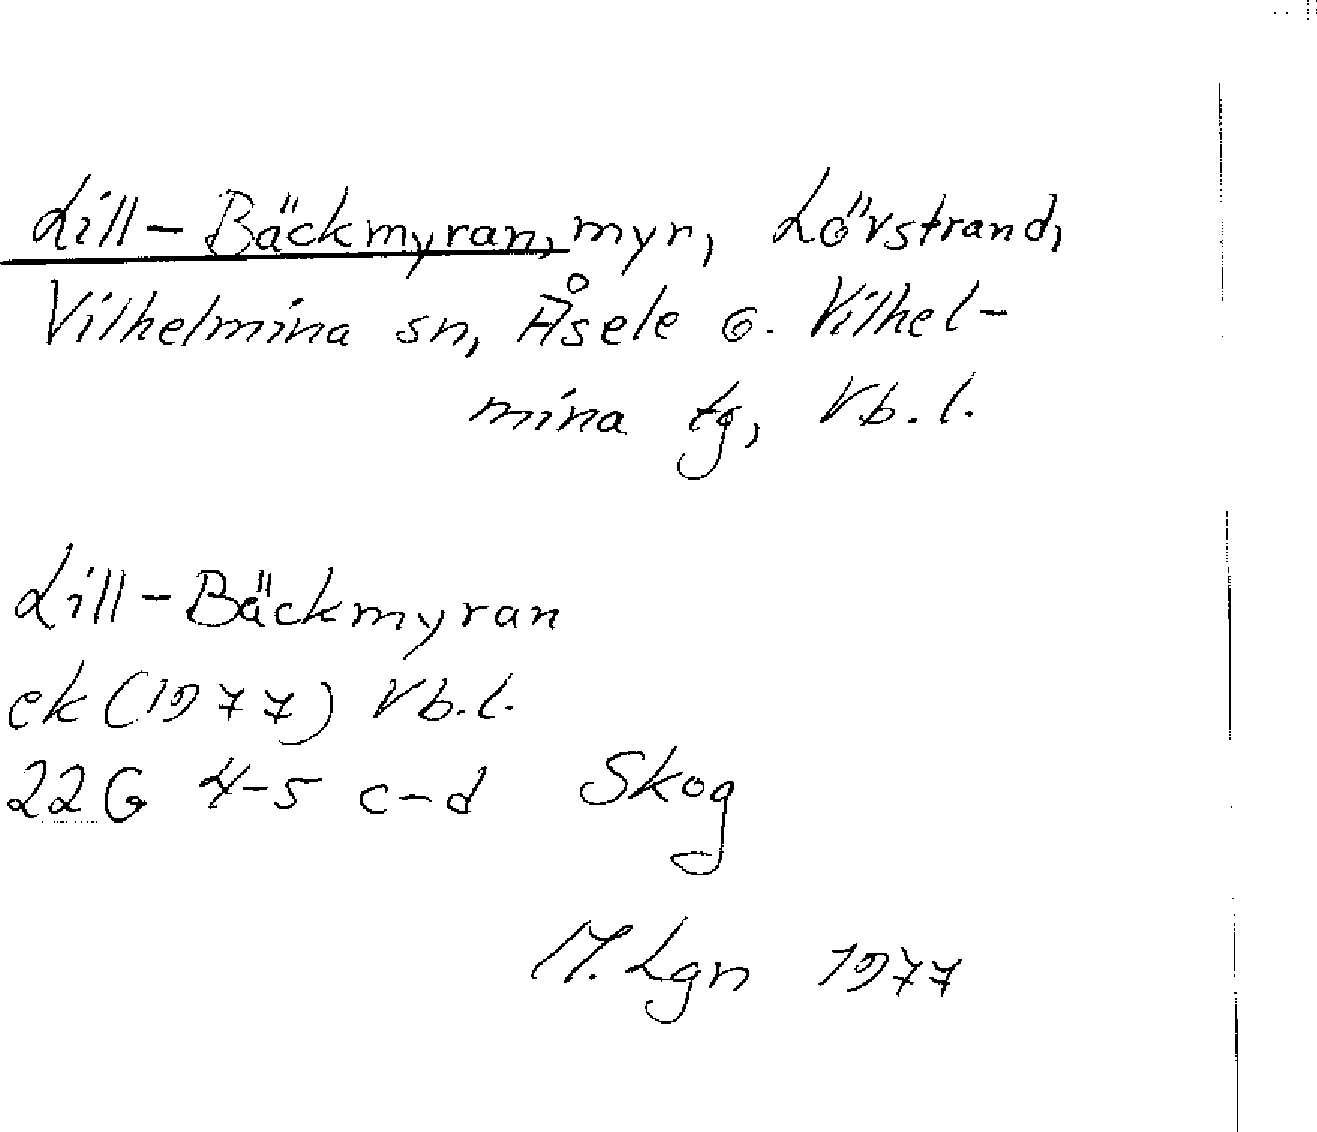 Lill-Bäckmyran, myr, Lövstrand,
Vilhelmina sn, Åsele o. Vilhel-
mina tg, Vb.l.
Lill-Bäckmyran
ek (1977) Vb.l.
22G 4-5 c-d Skog
M. Lgn 1977